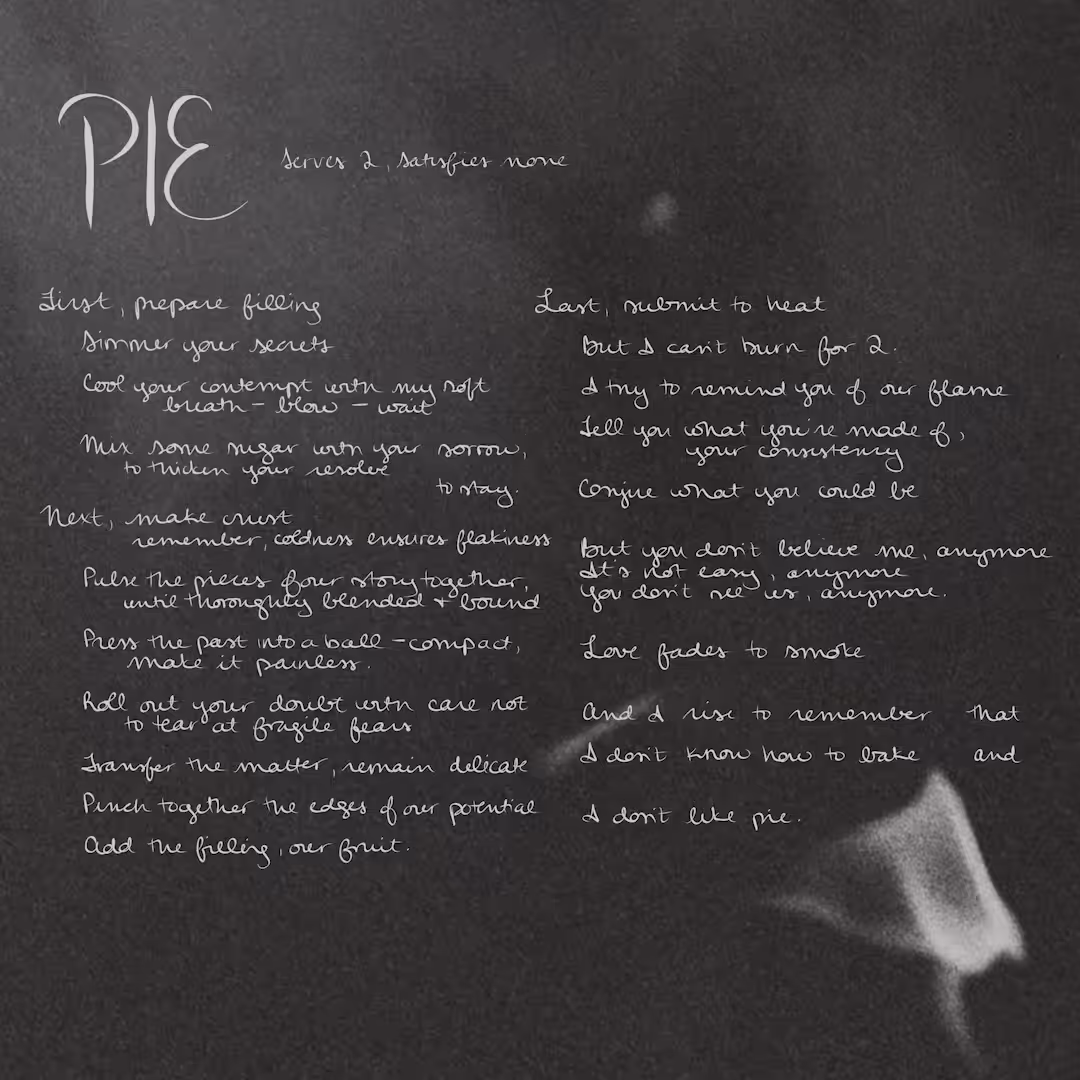 PIE
serves 2, satisfies none
First, prepare filling
Simmer your secrets
Cool your contempt with my soft
breath - blow - wait
Mix some sugar with your sorrow,
to thicken your resolve
to stay.
Next, make crust
remember, coldness ensures flakiness
Pulse the pieces of our story together,
until thoroughly blended + bound
Press the past into a ball - compact,
make it painless.
Roll out your doubt with care not
to tear at fragile fears
Transfer the matter, remain delicate
Pinch together the edges of our potential
Add the filling, our fruit.
Last, submit to heat
But I can't burn for 2.
I try to remind you of our flame
Tell you what you're made of,
your consistency
Conjue what you could be
But you don't believe me, anymore
It's not easy, anymore
You don't see us, anymore.
Love fades to smoke
And I rise to remember that
I don't know how to bake and
I don't like pie.